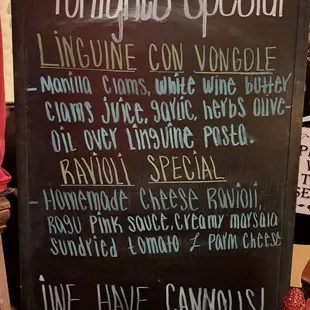 Tonights Special
LINGUINE CON VONGOLE
- Manilla Clams, white wine butter
Clams juice, garlic, herbs olive-
oil over linguine pasta.
RAVIOLI SPECIAL
- Homemade Cheese Ravioli,
Ragu Pink sauce, Creamy marsala
Sundried tomato & Parm Cheese
WE HAVE CANNOLIS!